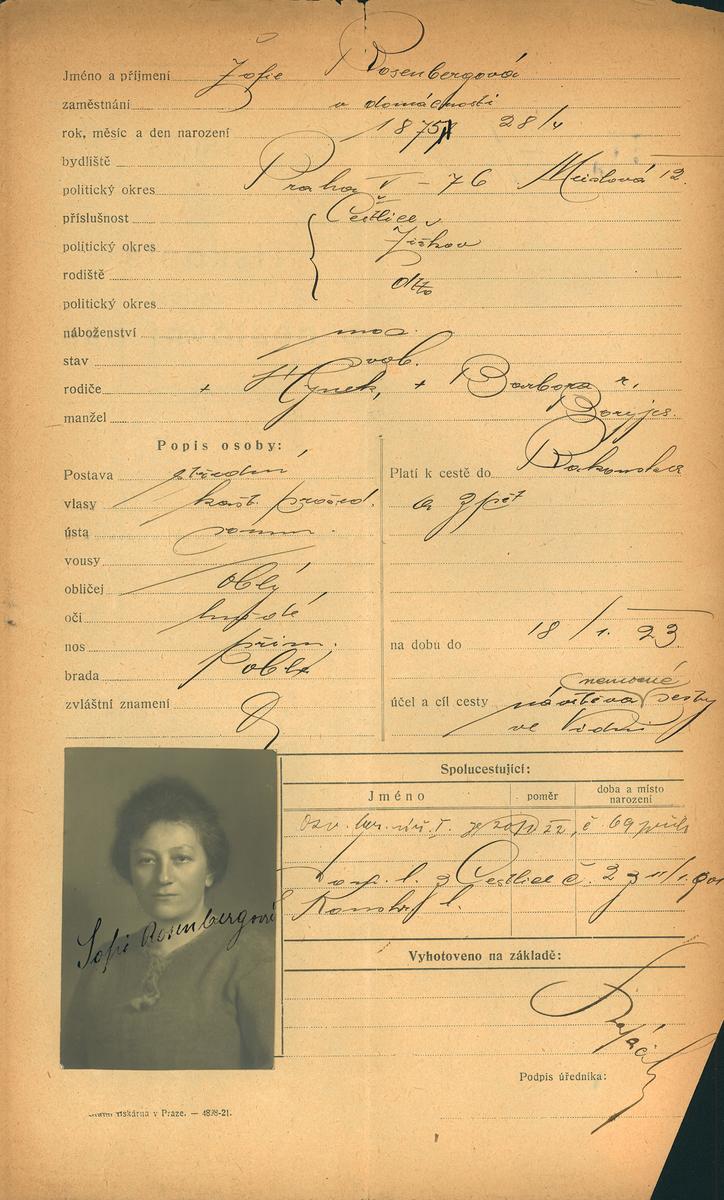 Jméno a příjmení Žofie Rosenbergová
zaměstnání v domácnosti
rok, měsíc a den narození 1875 28/4
bydliště
politický okres Praha V - 76 Meislová 12.
příslušnost Čestlice
politický okres Žižkov
rodiště dtto
politický okres
náboženství mos.
stav svob.
rodiče + Hynek, + Barbora r.
manžel
Popis osoby:
Postava střední
vlasy kašt. prošed.
ústa
vousy
obličej oblý
oči hnědé
nos přim.
brada oblá
zvláštní znamení
Platí k cestě do Rakouska
a zpět
na dobu do 18/1. 23.
nemocné
účel a cíl cesty návštěva sestry
ve Vídni
Spolucestující:
Jméno poměr doba a místo narození
Dom. l. z Čestlice č. 2 z 11/1.
Vyhotoveno na základě:
Žofie Rosenbergová
Podpis úředníka:
tiskárna v Praze. — 4878-21.